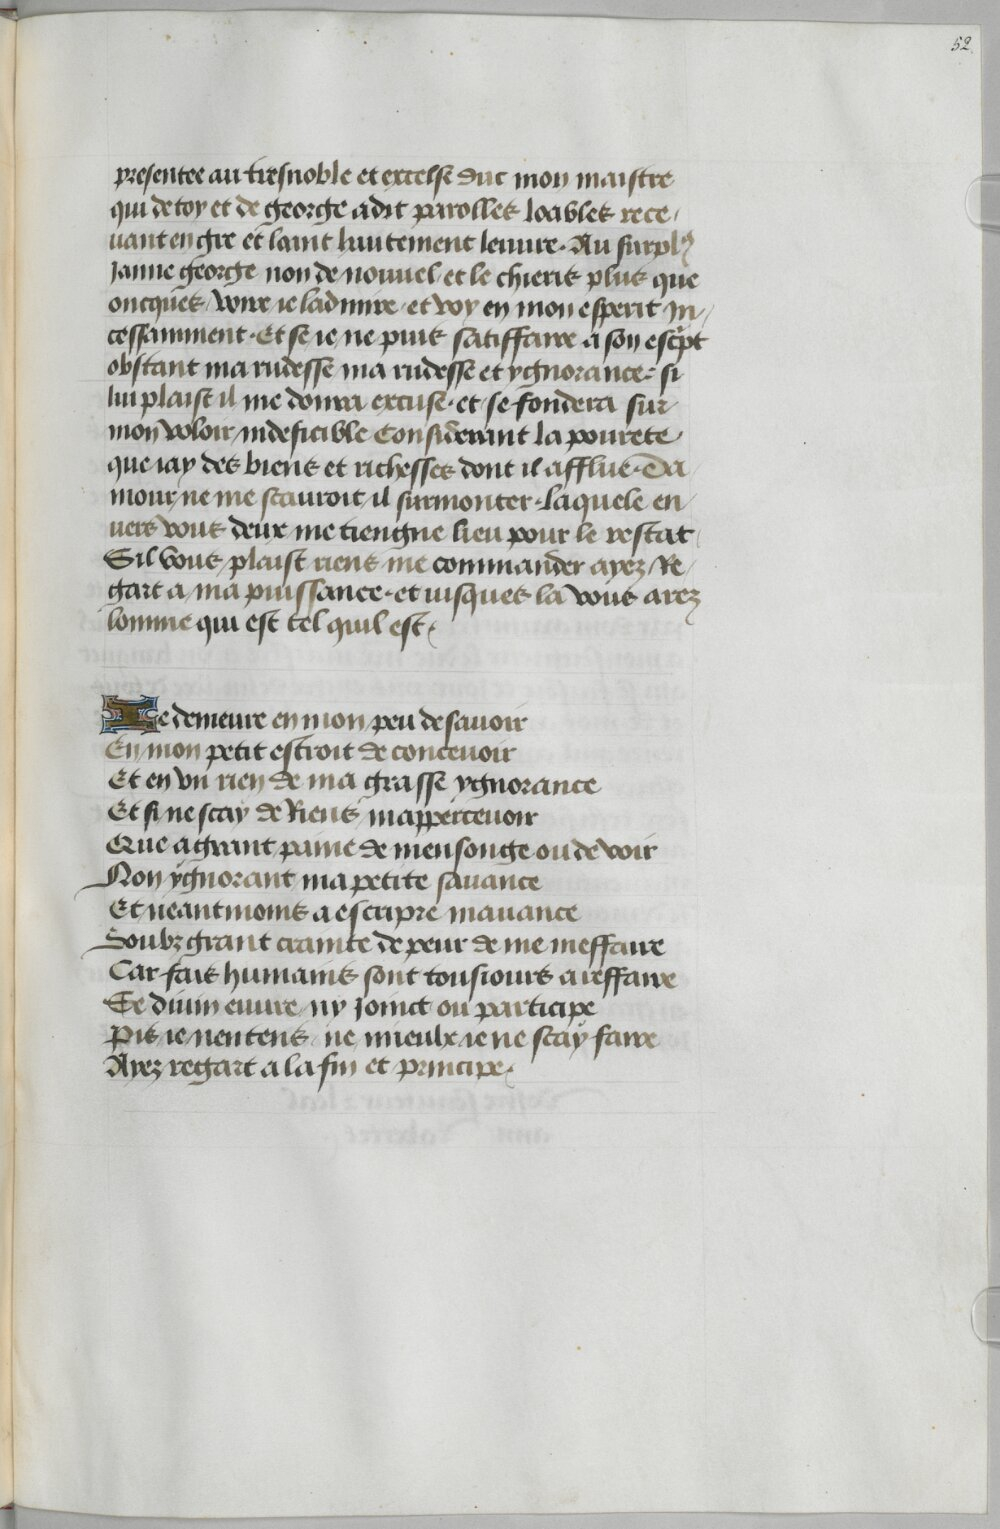 52
presentee au tresnoble et excelse duc mon maistre
qui de toy et de george a dit parolles loables rece/
uant en gre et lamt hautement leuure. Au surplꝰ
Jaime george non de nouuel et le chieris plus que
oncques. voire ie ladmire. et voy en mon esperit In/
cessamment. Et se ie ne puis satiffaire a son escript
obstant ma rudesse ma rudesse et ygnorance. si
lui plaist il me donra excuse. et se fondera sur
mon voloir indeficible Considerant la pourete
que iay des biens et richesses dont il afflue. Da
mour ne me scauroit il surmonter. laquele en
uers vous deux me tiengne lieu pour le restat.
Sil vous plaist riens me commander ayez Re/
gart a ma puissance. et iusques la vous arez
lomme qui est tel quil est.
Je demeure en mon peu de sauoir
En mon petit estroit de conceuoir
Et en vn rien de ma grasse ygnorance
Et si ne scay de Riens mappérceuoir
Que a grant paine de mensonge ou de voir
Non ygnorant ma petite sauance
Et neantmoins a escripre mauance
Soubz grant crainte de peur de me meffaire
Car fais humains sont tousiours a reffaire
Se diuin euure ny joinct ou participe
Pis ie nentens ne mieulx ie ne scay faire
Ayez regart a la fin et principe.